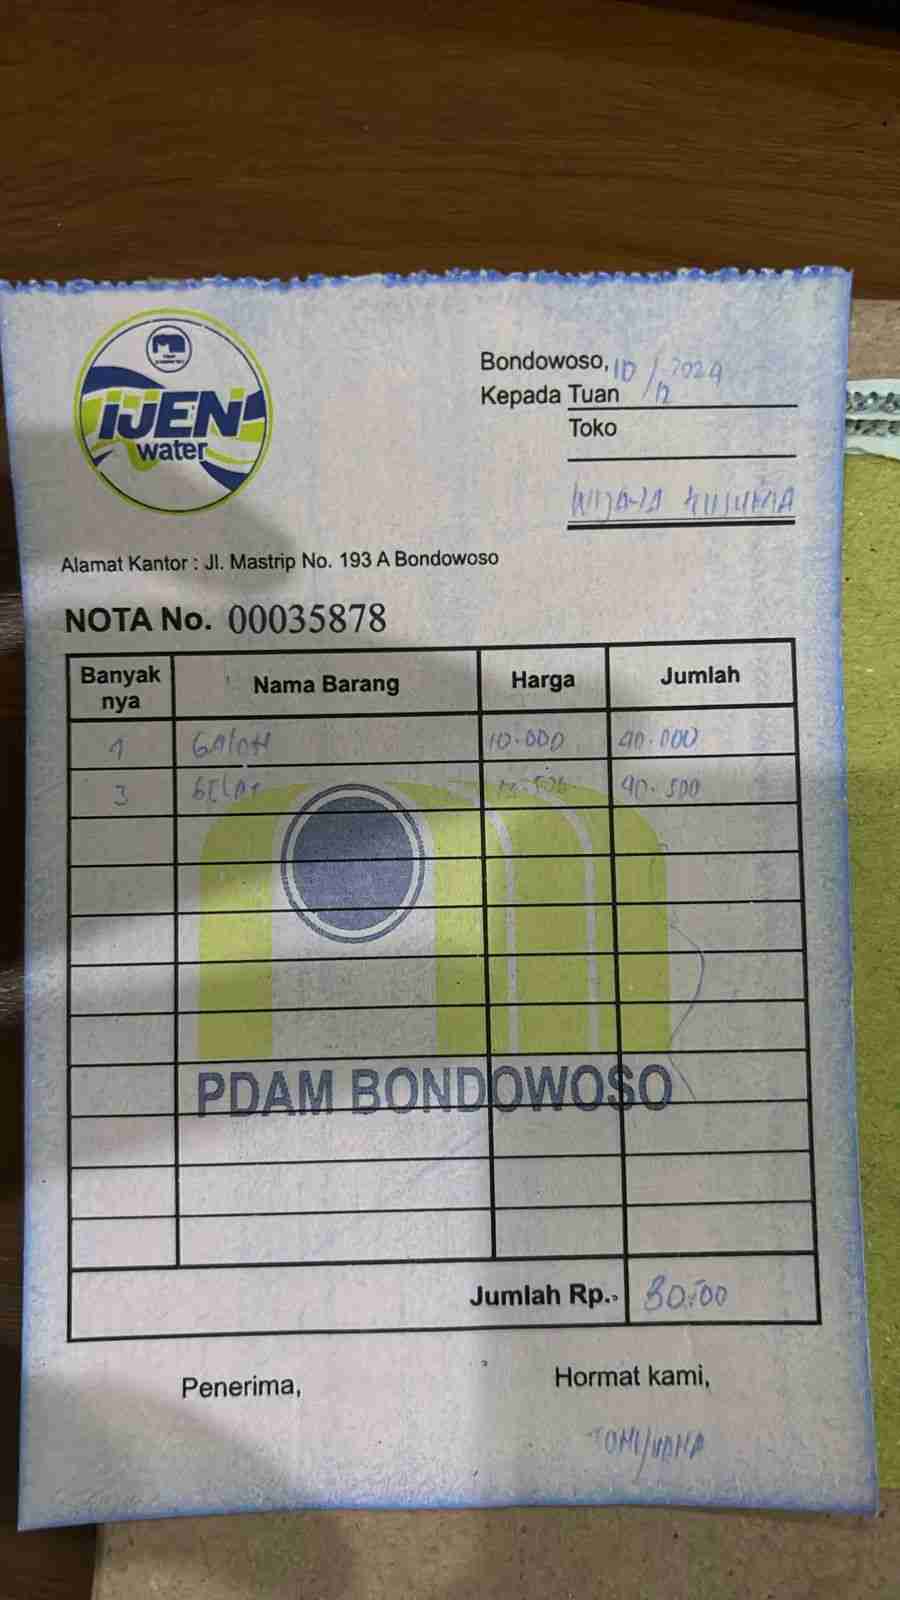 IJEN
water
Bondowoso, 10/12 2024
Kepada Tuan
Toko
WIJAYA KUSUMA
Alamat Kantor : Jl. Mastrip No. 193 A Bondowoso
NOTA No. 00035878
Banyak nya Nama Barang Harga Jumlah
4 GALON 10.000 40.000
3 GELAS 40.500
PDAM BONDOWOSO
Jumlah Rp. 80.500
Penerima, Hormat kami,